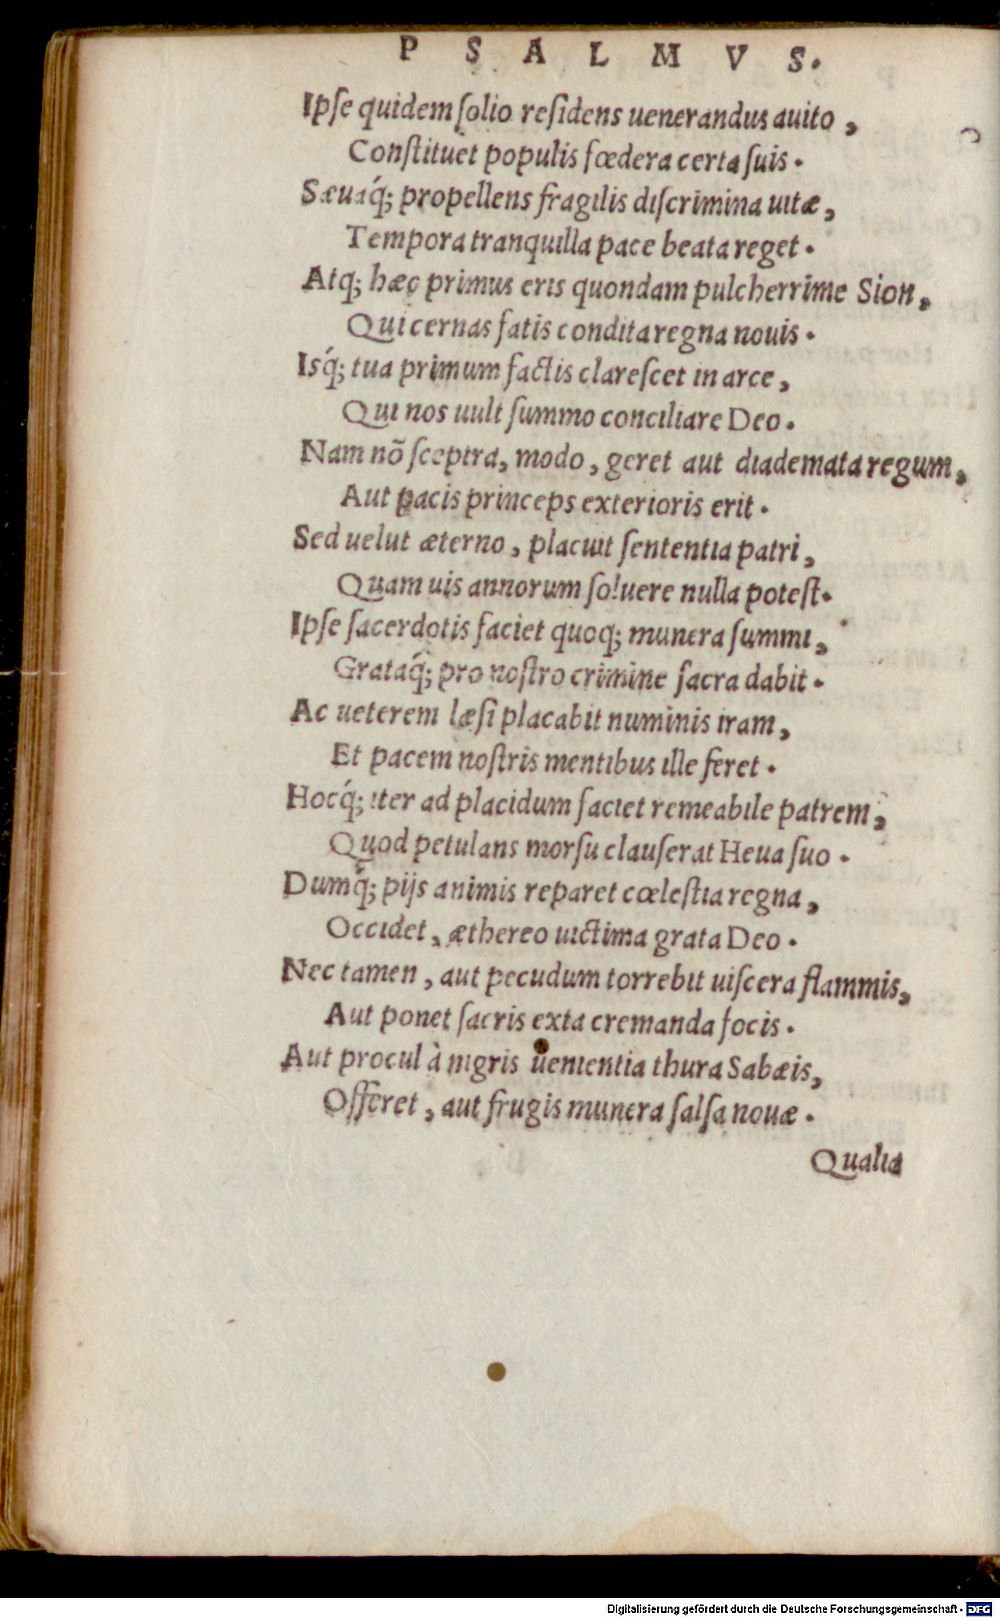 PSALMVS.
Ipſe quidem ſolio reſidens uenerandus auito,
Conſtituet populis fœdera certa ſuis.
Sæuaq́; propellens fragilis diſcrimina uitæ,
Tempora tranquilla pace beata reget.
Atq; hæc primus eris quondam pulcherrime Sion,
Qui cernas fatis condita regna nouis.
Isq́; tua primum factis clareſcet in arce,
Qui nos uult ſummo conciliare Deo.
Nam nõ ſceptra, modo, geret aut diademata regum,
Aut pacis princeps exterioris erit.
Sed uelut æterno, placuit ſententia patri,
Quam uis annorum ſoluere nulla poteſt.
Ipſe ſacerdotis faciet quoq; munera ſummi,
Grataq́; pro noſtro crimine ſacra dabit.
Ac ueterem læſi placabit numinis iram,
Et pacem noſtris mentibus ille feret.
Hocq́; iter ad placidum faciet remeabile patrem,
Quod petulans morſu clauſerat Heua ſuo.
Dumq́; pijs animis reparet cœleſtia regna,
Occidet, æthereo uictima grata Deo.
Nec tamen, aut pecudum torrebit uiſcera flammis,
Aut ponet ſacris exta cremanda focis.
Aut procul à nigris uenientia thura Sabæis,
Offeret, aut frugis munera ſalſa nouæ.
Qualia
Digitalisierung gefördert durch die Deutsche Forschungsgemeinschaft - DFG